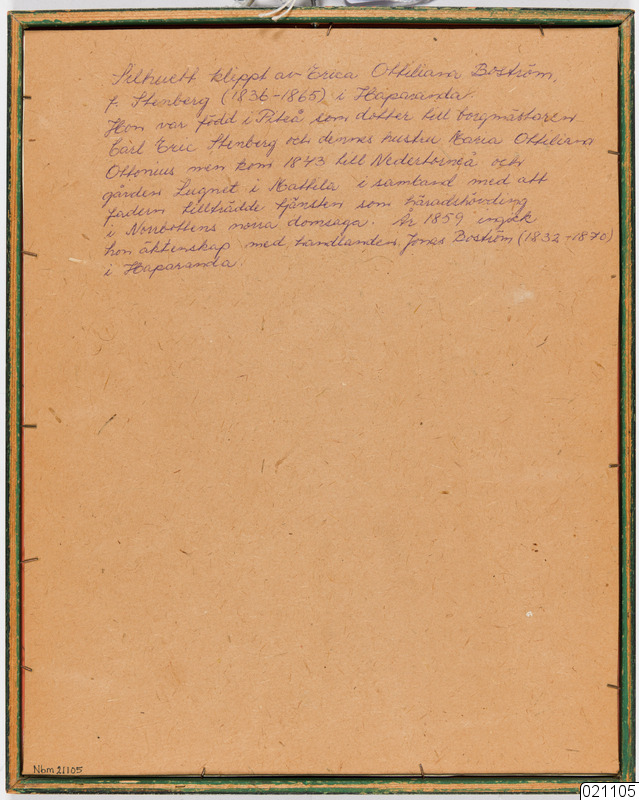 Silhuett klippt av Erica Ottiliana Boström,
f. Stenberg (1836-1865) i Haparanda.
Hon var född i Piteå som dotter till borgmästaren
Carl Eric Stenberg och dennes hustru Maria Ottiliana
Ottonius men kom 1843 till Nedertorneå och
gården Lugnet i Mattila i samband med att
fadern tillträdde tjänsten som häradshövding
i Norrbottens norra domsaga. År 1859 ingick
hon äktenskap med handlanden Jonas Boström (1832-1870)
i Haparanda
Nbm 21105
021105